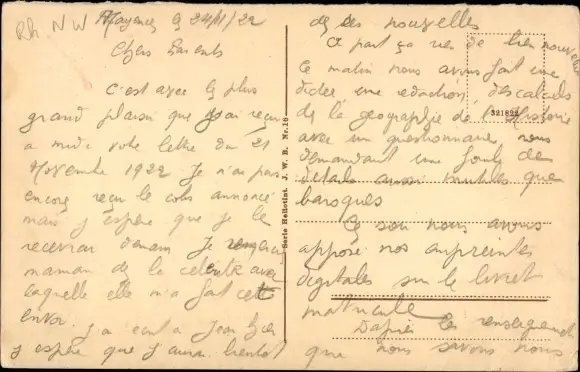 Rh. NW
Mayence le 24/11/22
Chers Parents
C'est avec le plus
grand plaisir que j'ai reçu
a midi votre lettre du 21
Novembre 1922 Je n'ai pas
encore reçu le colis annoncé
mais j'espère que je le
recevrai demain Je remercie
maman de la celerité avec
laquelle elle m'a fait cet
envoi. J'ai ecrit a Jean
j'espère que j'aurai bientot
Serie Heliotint. J. W. B. Nr. 16
de ses nouvelles
A part ça rien de bien nouveau
Ce matin nous avons fait une
dictée une redaction, des calculs
de la geographie de l'Histoire
321828
avec un questionnaire nous
demandant une foule de
détails aussi inutiles que
baroques
Ce soir nous avons
apposé nos empreintes
digitales sur le livret
matricule
D'après les renseignements
que nous savons nous